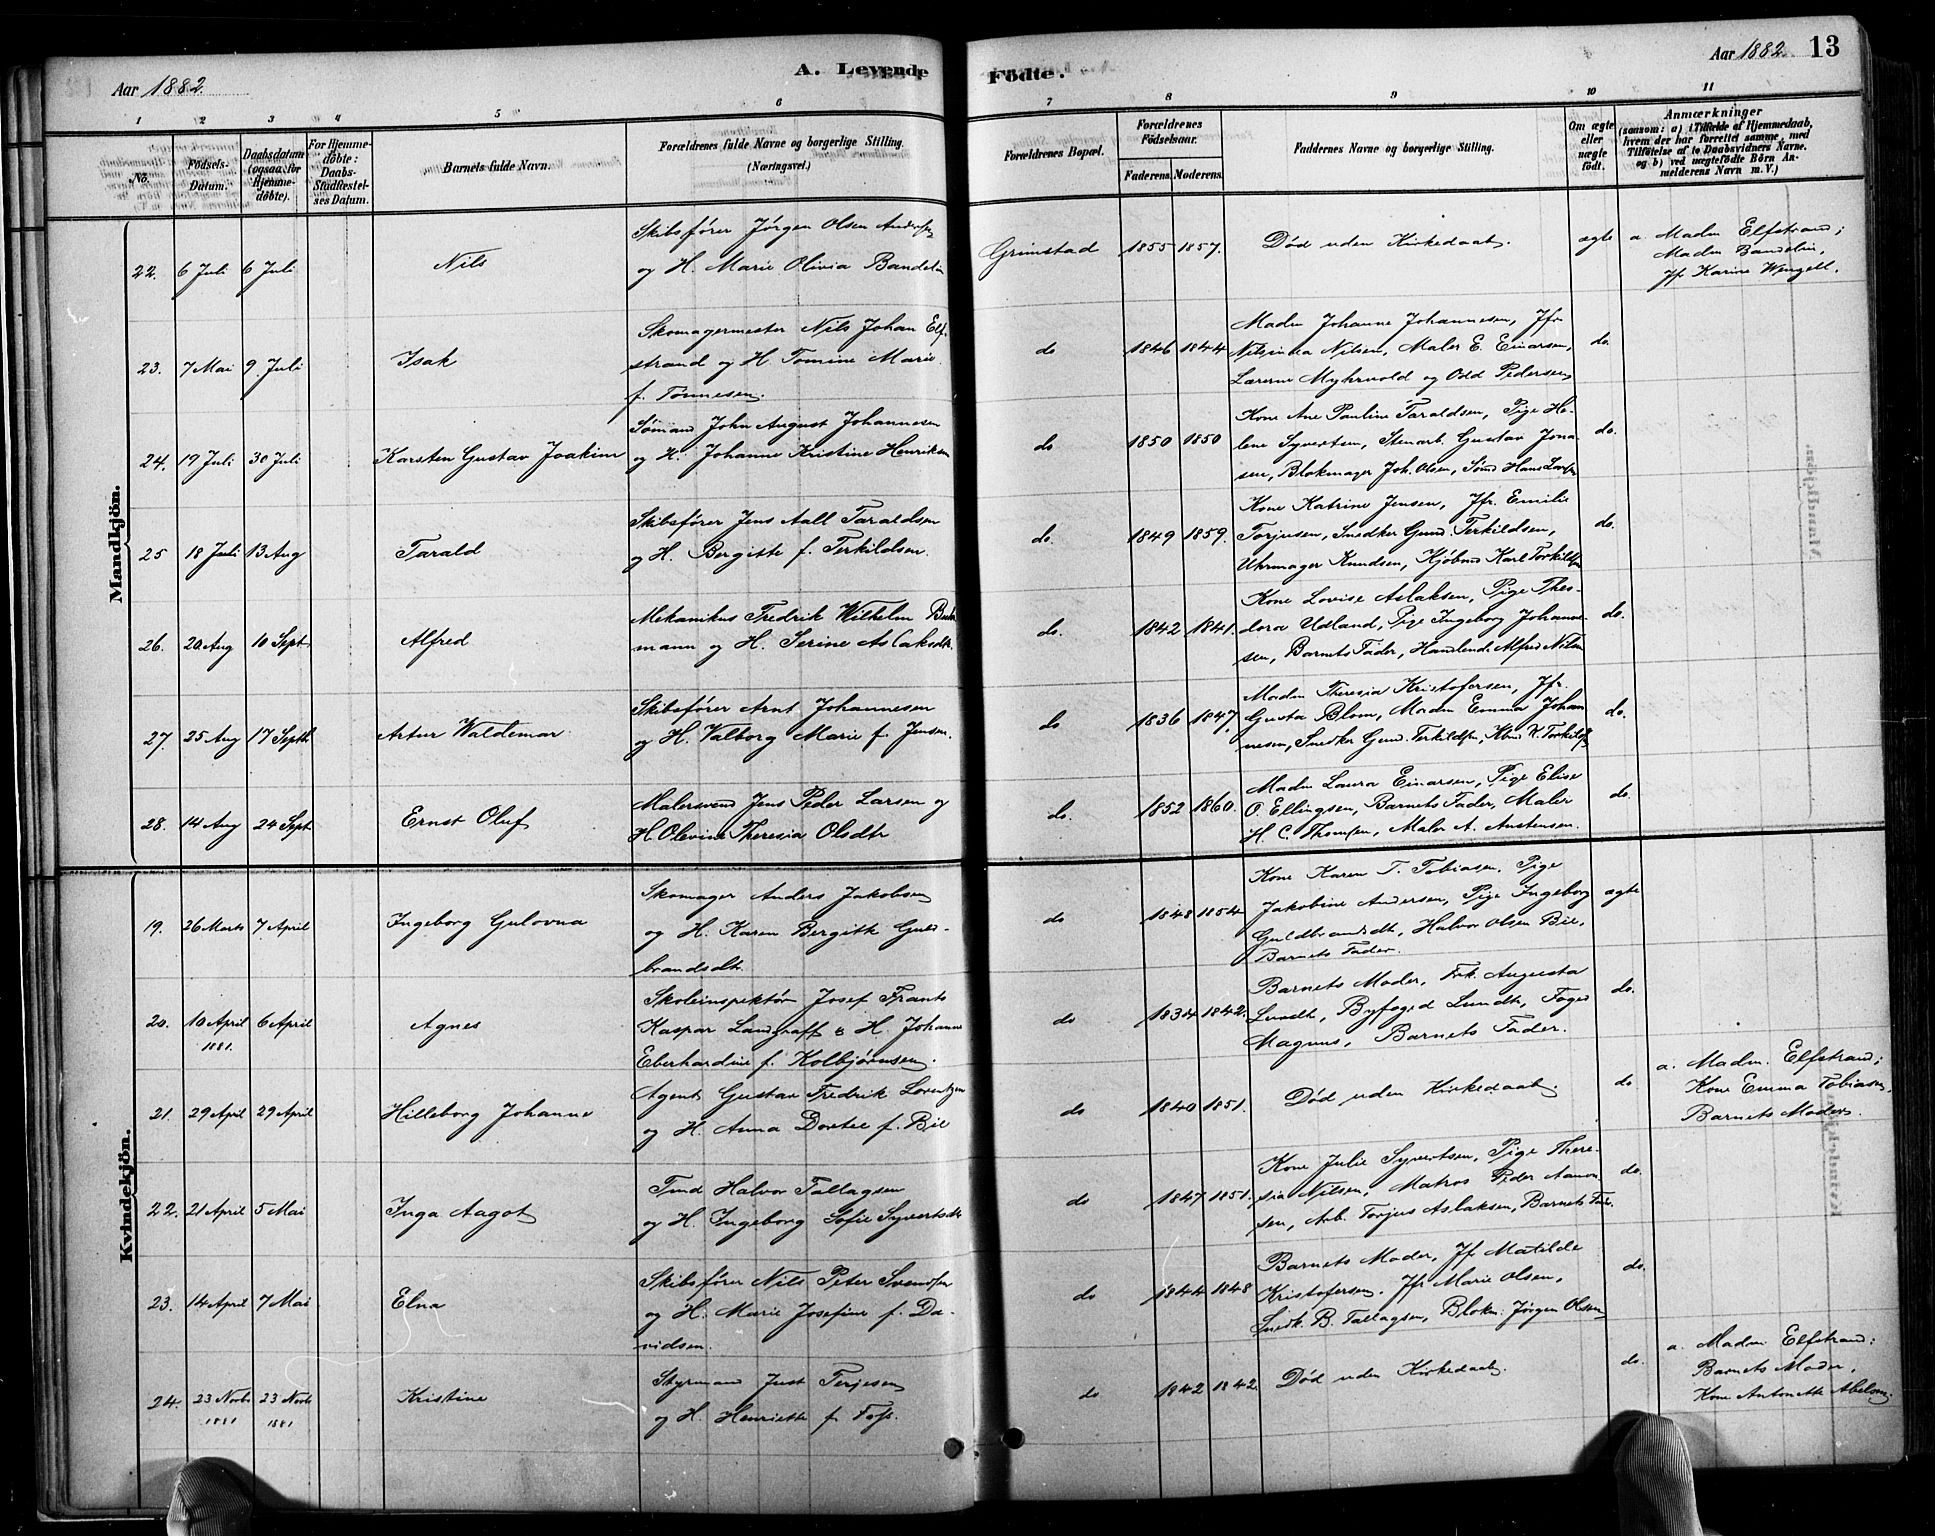 Aar 1882.
A. Levende
Födte.
Aar 1882.
13
1 2 3 4 5 6 7 8 9 10 11
No.
Födsels-Datum.
Daabsdatum (ogsaa for Hjemmedöbte).
For Hjemmedöbte: Daabs-Stadfæstelses Datum.
Barnets fulde Navn.
Forældrenes fulde Navne og borgerlige Stilling.
(Næringsvei.)
Forældrenes Bopæl.
Forældrenes Födselsaar.
Faderens. Moderens.
Faddernes Navne og borgerlige Stilling.
Om ægte eller uægte födt.
Anmærkninger
(saasom: a) i Tilfælde af Hjemmedaab,
hvem der har forrettet samme, med
Tilföielse af to Daabsvidners Navne.
og b) ved uægtefödte Börn An-
melderens Navn m. V.)
Mandkjön.
22. 6 Juli 6 Juli Nils
Skibsfører Jörgen Olsen Anders
og H. Marie Olivia Bandelin
Grimstad 1855 1857.
Död uden Kirkedaab.
ægte
a. Madm Elfstrand;
Madm Bandelin,
Jf Karine Wengell.
23. 7 Mai 9. Juli Isak
Skomagermester Nils Johan Elf-
strand og H Tomine Marie
f. Tönnesen.
do 1846 1844
Madm Johanne Johannesen, Jfr.
Nilsinna Nilsen, Maler E. Einarsen,
Lærerne Myhrvold og Odd Pedersen
do.
24. 19 Juli 30 Juli Karsten Gustav Joakim
Sömand John August Johannesen
og H. Johanne Kristine Henriksen
do 1850 1850
Kone Ane Pauline Taraldsen, Pige He-
lene Syvertsen, Stenarb. Gustav Jona-
sen, Blokmager Joh. Olsen, Sömd Hans
do.
25 18 Juli 13 Aug Tarald
Skibsfører Jens Aall Taraldsen
og H. Bergitte f. Terkildsen.
do. 1849 1859.
Kone Katrine Jensen, Jfr. Emilie
Torjusen, Snedker Gund. Terkildsen,
Uhrmager Knudsen, Kjöbmd Karl Torkildsen
do.
26. 20 Aug 10 Sept Alfred
Mekanikus Fredrik Wilhelm
mann og H. Serine Aslaksdtr.
do. 1842 1841.
Kone Lovise Aslaksen, Pige Theo-
dora Udland, Pige Ingeborg Johanne-
sen, Barnets Fader, Handlende Alfred Nilsen
do.
27. 25 Aug 17 Septbr Artur Waldemar
Skibsfører Arnt Johannesen
og H. Valborg Marie f. Jensen.
do 1836 1847,
Madm Theresia Kristofersen, Jfr.
Gusta Blom, Madm Emma Johan
nesen, Snedker Gund. Terkildsen, Kbmd K. Torkildsen
do.
28. 14 Aug 24 Sept Ernst Oluf
Malersvend Jens Peder Larsen og
H. Olevine Theresia Olsdtr
do. 1852 1860.
Madm Laura Einarsen, Pige Elise
O. Ellingsen, Barnets Fader, Maler
H. C. Thomsen, Maler A. Austensen.
do.
Kvindekjön.
19. 26 Marts 7 April Ingeborg Gulovna
Skomager Anders Jakobsen
og H. Karen Bergitte Guld-
brandsdtr.
do 1848 1854
Kone Karen T. Tobiasen, Pige
Jakobine Andersen, Pige Ingeborg
Guldbrandsdtr, Halvor Olsen Bie,
Barnets Fader.
ægte
20. 10 April 1881. 6 April Agnes
Skoleinspektör Josef Frants
Kaspar Landgraff & H. Johanne
Eberhardine f. Kolbjörnsen.
do 1834 1842.
Barnets Moder, Frk. Augusta
Lundh, Byfoged Lundh, Foged
Magnus, Barnets Fader.
do.
21. 29 April 29 April Hilleborg Johanne
Agent Gustav Fredrik Lorentzen
og H. Anna Dortee f. Bie
do 1840 1851.
Död uden Kirkedaab.
do
a. Madm. Elfstrand;
Kone Emma Tobiasen,
Barnets Moder.
22. 21 April 5 Mai Inga Aagot
Tmd Halvor Tallagsen
og H. Ingeborg Sofie Syvertsdtr
do 1847 1851.
Kone Julie Syvertsen, Pige There-
sia Nilsen, Matros Peder Aanon
sen, Arb. Torjus Aslaksen, Barnets Fader.
do.
23. 14 April 7 Mai Elna
Skibsfører Nils Peter Svendsen
og H. Marie Josefine f. Da-
vidsen.
do 1844 1848
Barnets Moder, Jfr Matilde
Kristofersen, Jfr Marie Olsen,
Snedk. B. Tallagsen, Blokm. Jörgen Olsen
do.
24. 23 Novbr 1881 23 Novbr 1881 Kristine
Styrmand Just Terjesen
og H. Henriette f. Foss.
do 1842 1842.
Död uden Kirkedaab.
do.
a. Madm Elfstrand;
Barnets Moder,
Kone Antonette Abelson;